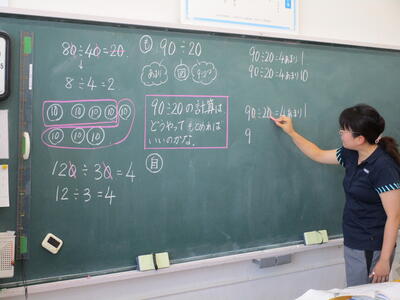 80÷40=20
8÷4=2
⑩ ⑩ ⑩ ⑩ ⑩
⑩ ⑩ ⑩
120÷30=4
12÷3=4
も 90÷20
あまり 図
90÷20の計算は
どうやってもとめれば
いいのかな。
自
90÷20=4あまり1
90÷20=4あまり10
90÷20=4あまり1
9